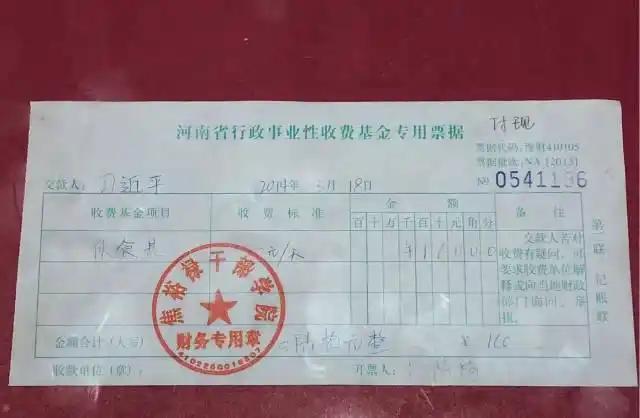 河南省行政事业性收费基金专用票据
付现
票据代码:豫财410105
票据批次:NA [2013]
交款人:习近平 2014年3月18日 № 0541186
收费基金项目 收费标准 金额 备注
百十万千百十元角分
伙食费 元/天 ¥16000
交款人若对
收费有疑问,可
要求收费单位解
释或向当地财政
部门询问、举
报。
第一联 记账联
焦裕禄干部学院
财务专用章
金额合计(大写) 陆拾元整 ¥ 160
收款单位(章): 开票人: